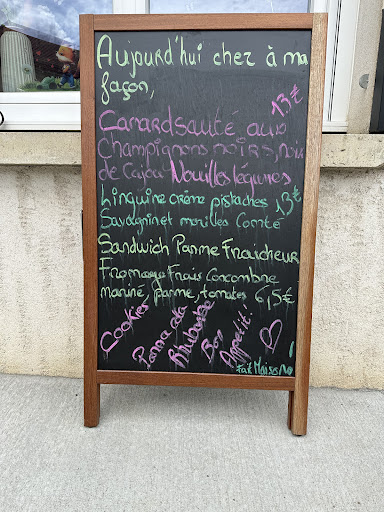 Aujourd'hui chez à ma
façon,
13€
Canard sauté aux
Champignons noirs, noix
de Cajou Nouilles légumes
Linguine crème pistaches 13€
Savagnin et morilles Comté
Sandwich Parme Fraicheur
Fromage Frais Concombre
mariné, parme, tomates 6,5€
Cookies
Panna cota
Rhubarbe
Bon
Appetit!
Fait Maison!